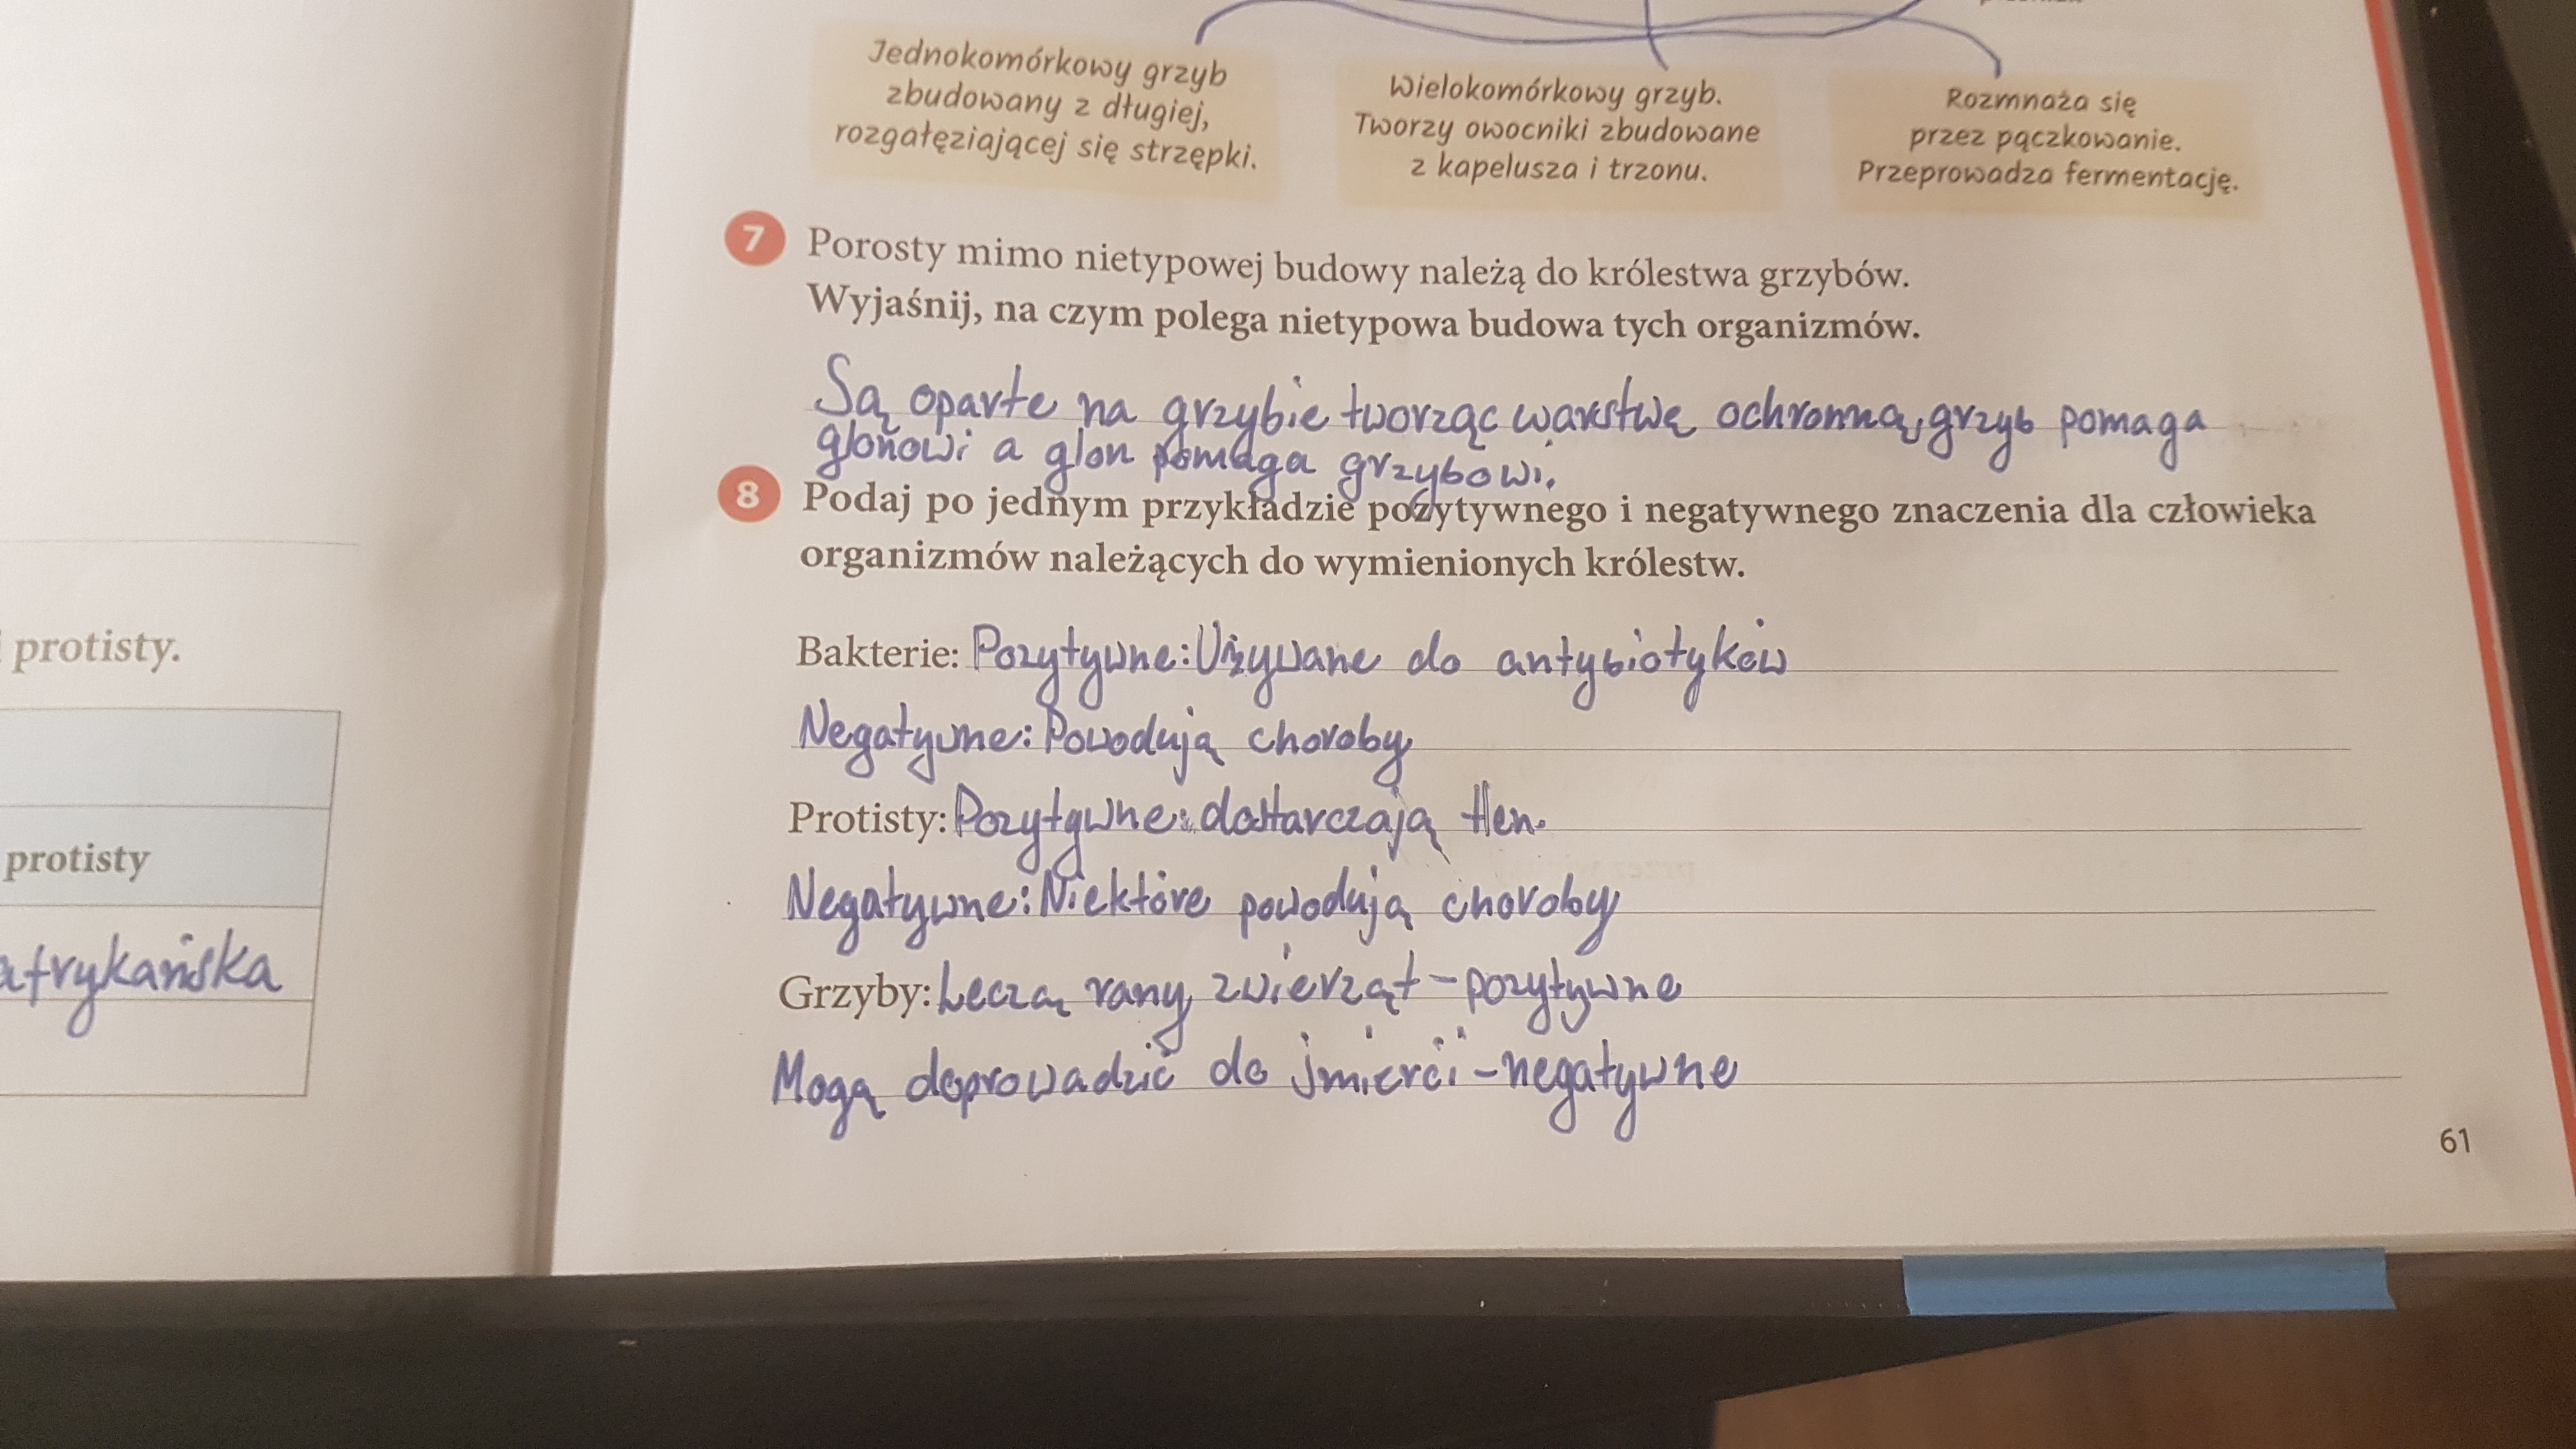 Jednokomórkowy grzyb
zbudowany z długiej,
rozgałęziającej się strzępki.
Wielokomórkowy grzyb.
Tworzy owocniki zbudowane
z kapelusza i trzonu.
Rozmnaża się
przez pączkowanie.
Przeprowadza fermentację.
7 Porosty mimo nietypowej budowy należą do królestwa grzybów.
Wyjaśnij, na czym polega nietypowa budowa tych organizmów.
Są oparte na grzybie tworząc warstwę ochronną, grzyb pomaga
glonowi a glon pomaga grzybowi.
8 Podaj po jednym przykładzie pozytywnego i negatywnego znaczenia dla człowieka
organizmów należących do wymienionych królestw.
Bakterie: Pozytywne: Używane do antybiotyków
Negatywne: Powodują choroby
Protisty: Pozytywne: dostarczają tlen.
Negatywne: Niektóre powodują choroby
Grzyby: Leczą rany zwierząt - pozytywne
Mogą doprowadzić do śmierci - negatywne
61
protisty.
protisty
afrykańska